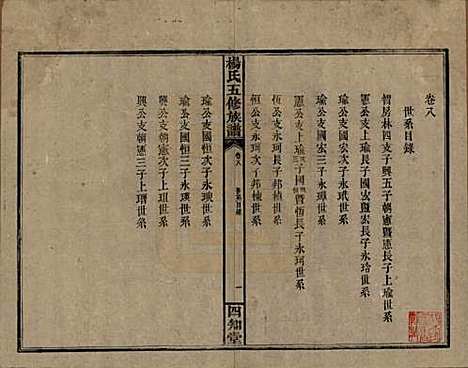 卷八
世系目錄
智房林四支子興五子朝憲暨憲長子上瑜世系
憲公支上瑜長子國宏暨宏長子永珆世系
瑜公支國宏次子永玳世系
瑜公支國宏三子永璋世系
憲公支上瑜三子國恆暨恆長子永珂世系
恆公支永珂長子邦植世系
恆公支永珂次子邦棟世系
楊氏五修族譜
卷八
世系目錄
一
四知堂
瑜公支國恆次子永璜世系
瑜公支國恆三子永瑛世系
興公支朝憲次子上琪世系
興公支朝憲三子上瑨世系